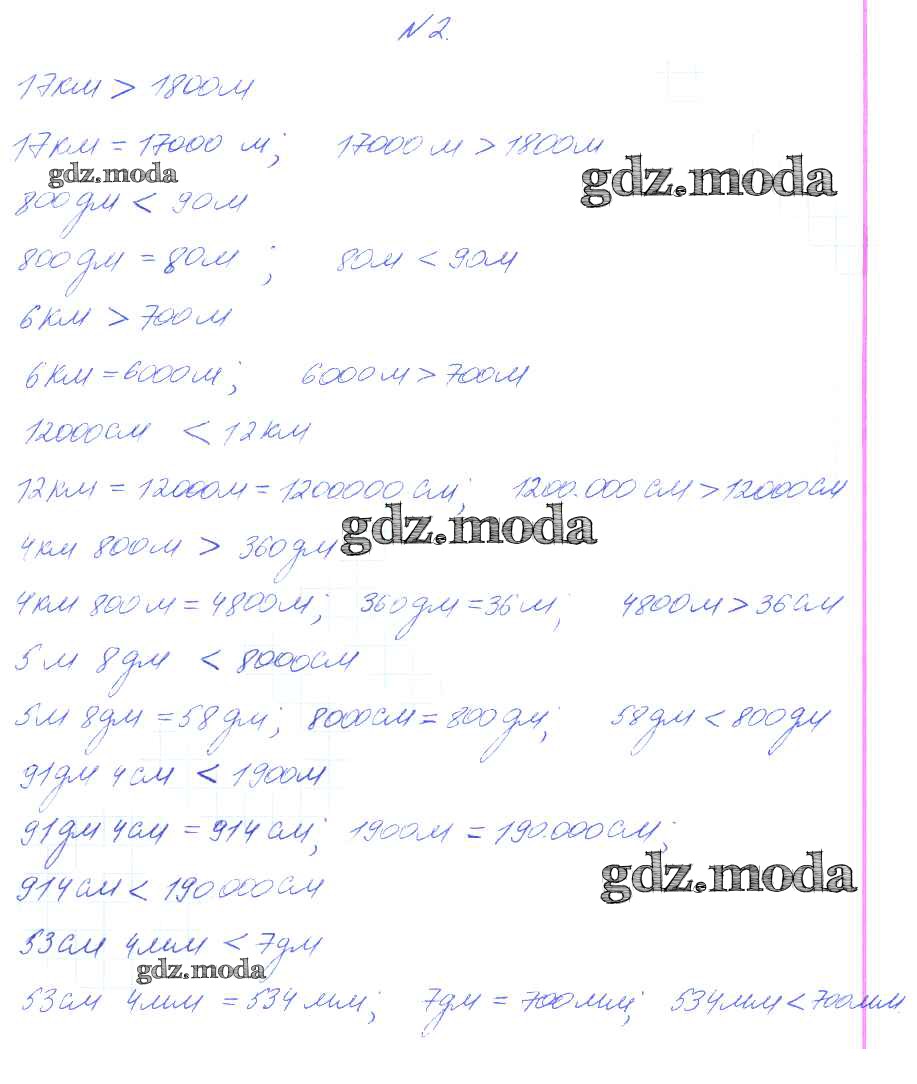 N2.
17км > 1800м
17км = 17000 м; 17000м > 1800м
gdz.moda
gdz.moda
800дм < 90м
800дм = 80м ; 80м < 90м
6км > 700м
6км = 6000м; 6000м > 700м
12000см < 12км
12км = 12000м = 1200000 см; 1200.000 см > 12000см
gdz.moda
4км 800м > 360дм
4км 800м = 4800м; 360дм = 36м; 4800м > 36см
5м 8дм < 8000см
5м 8дм = 58дм; 8000см = 800дм; 58дм < 800дм
91дм 4см < 1900м
91дм 4см = 914см; 1900м = 190.000см;
gdz.moda
914см < 190.000см
53см 4мм < 7дм
gdz.moda
53см 4мм = 534мм; 7дм = 700мм; 534мм < 700мм.